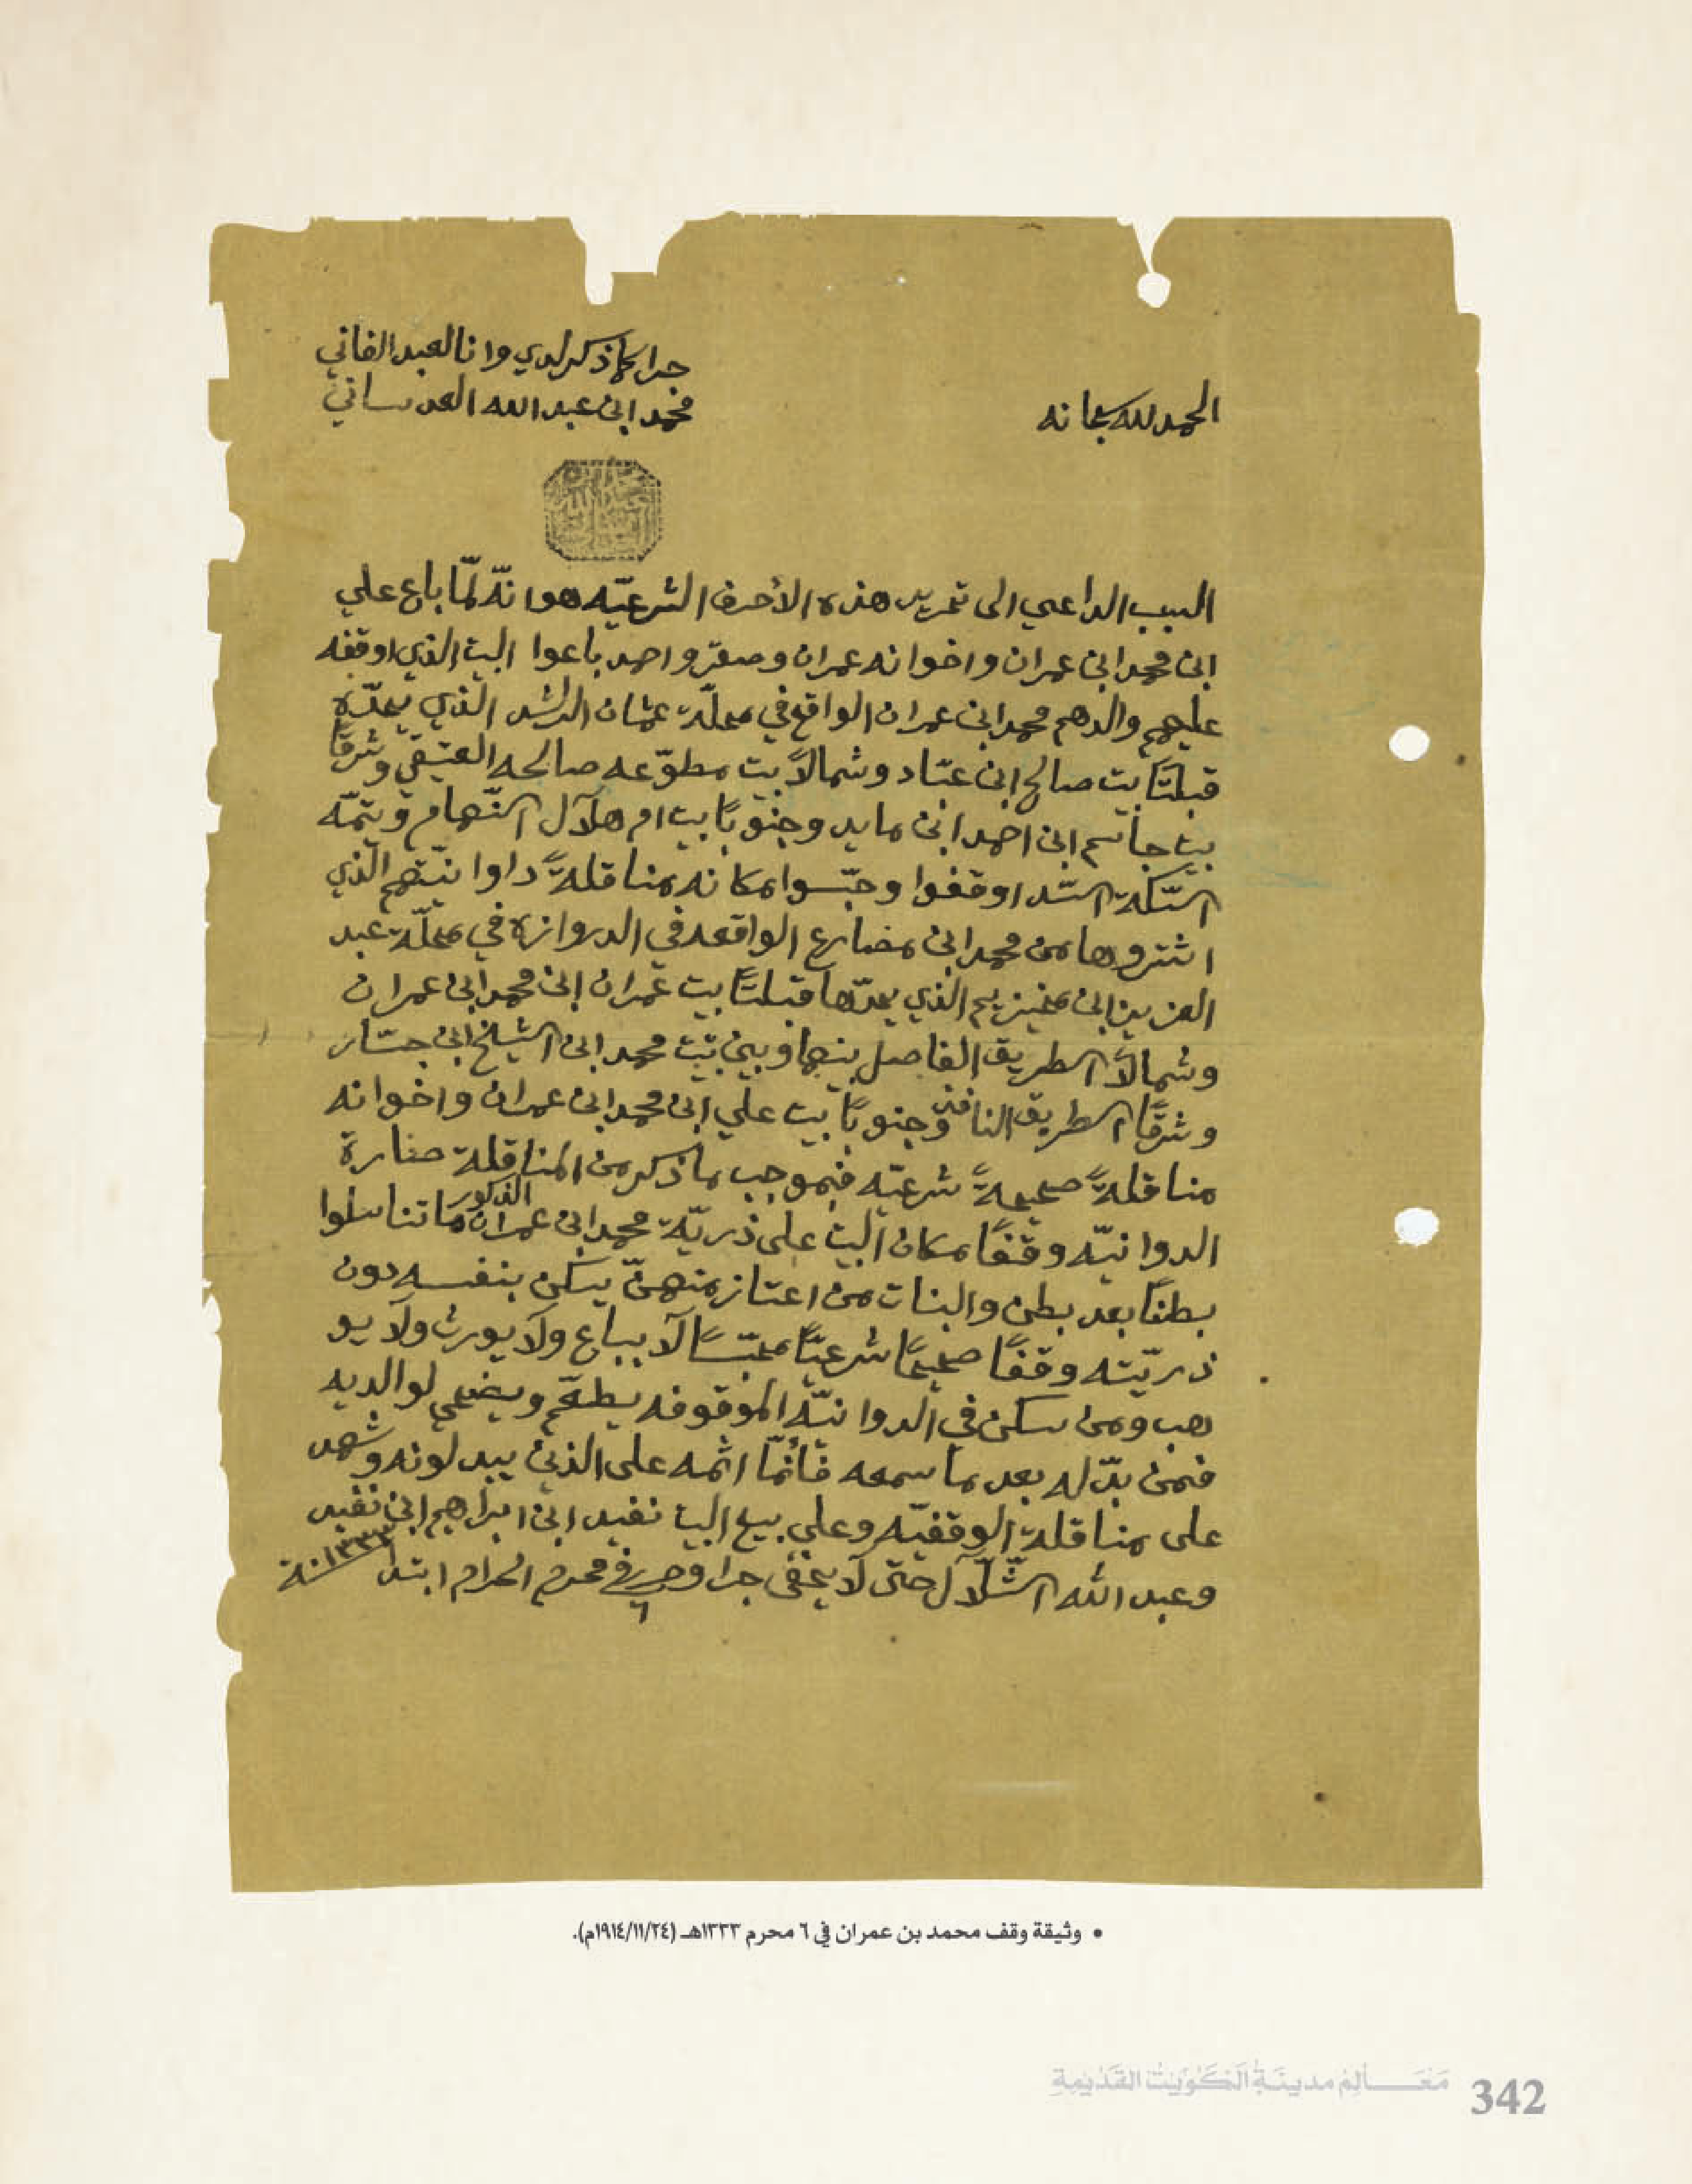 الحمد لله سبحانه
جرا كما ذكر لدي وانا العبد الفاني
محمد ابن عبد الله العدساني
السبب الداعي الى تحرير هذه الأحرف الشرعيّه هو انّه لمّا باع علي
ابن محمد ابن عمران واخوانه عمران وصقرّ واحمد باعوا البيت الذي اوقفه
عليهم والدهم محمد ابن عمران الواقع في محلّة عثمان الراشد الذي يحدّه
قبلتًا بيت صالح ابن عبّاد وشمالاً بيت مطوّعه صالحه العتيقي وشرقًا
بيت جاسم ابن احمد ابن مايد وجنوبًا بيت ام هلآل النّهام ويتمّه
السّكة السّد اوقفوا وحبّسوا مكانه مناقلةً داوانيّتهم الّذي
اشتروها من محمد ابن مضارع الواقعه في الدروازه في محلّة عبد
العزيز ابن الذي يحدّها قبلتًا بيت عمران ابن محمد ابن عمران
وشمالاً الطريق الفاصل بينها وبين بيت محمد ابن الشيخ ابن جسّار
وشرقًا الطريق النافذ وجنوبًا بيت علي ابن محمد ابن عمران واخوانه
مناقلةً صحيحةً شرعيّه فبموجب ما ذكر من المناقلة صارة
الدوانيّه وقفًا مكان البيت على ذريّة محمد ابن عمران المذكور ما تناسلوا
بطنًا بعد بطن والبنات من اعتاز منهنّ يسكن بنفسه دون
ذريّته وقفًا صحيحًا شرعيًّا محبّسًا لآ يباع ولآ يورث ولآ يو
هب ومن سكن في الدوانيّه الموقوفه يطعّم ويضحي لوالديه
فمن بدّله بعد ما سمعه فأنمّا اثمه على الذين يبدلونه وشهد
على مناقلة الوقفيّه وعلى بيع البيت نفيد ابن ابراهيم ابن نفيد
وعبد الله الشّلّآل حتى لآ يخفى جرا وحرر في ٦ محرم الحرام ابتدا سنة ١٣٣٣
• وثيقة وقف محمد بن عمران في ٦ محرم ١٣٣٣هـ (١٩١٤/١١/٢٤م).
مَعَالِمُ مدينَةِ الكُوَيْتْ القَدْيمِةِ
342